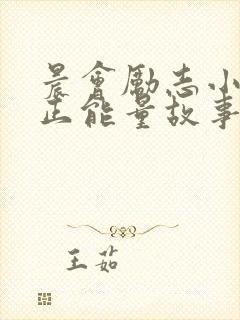 晨會勵志小
正能量故事
王茹